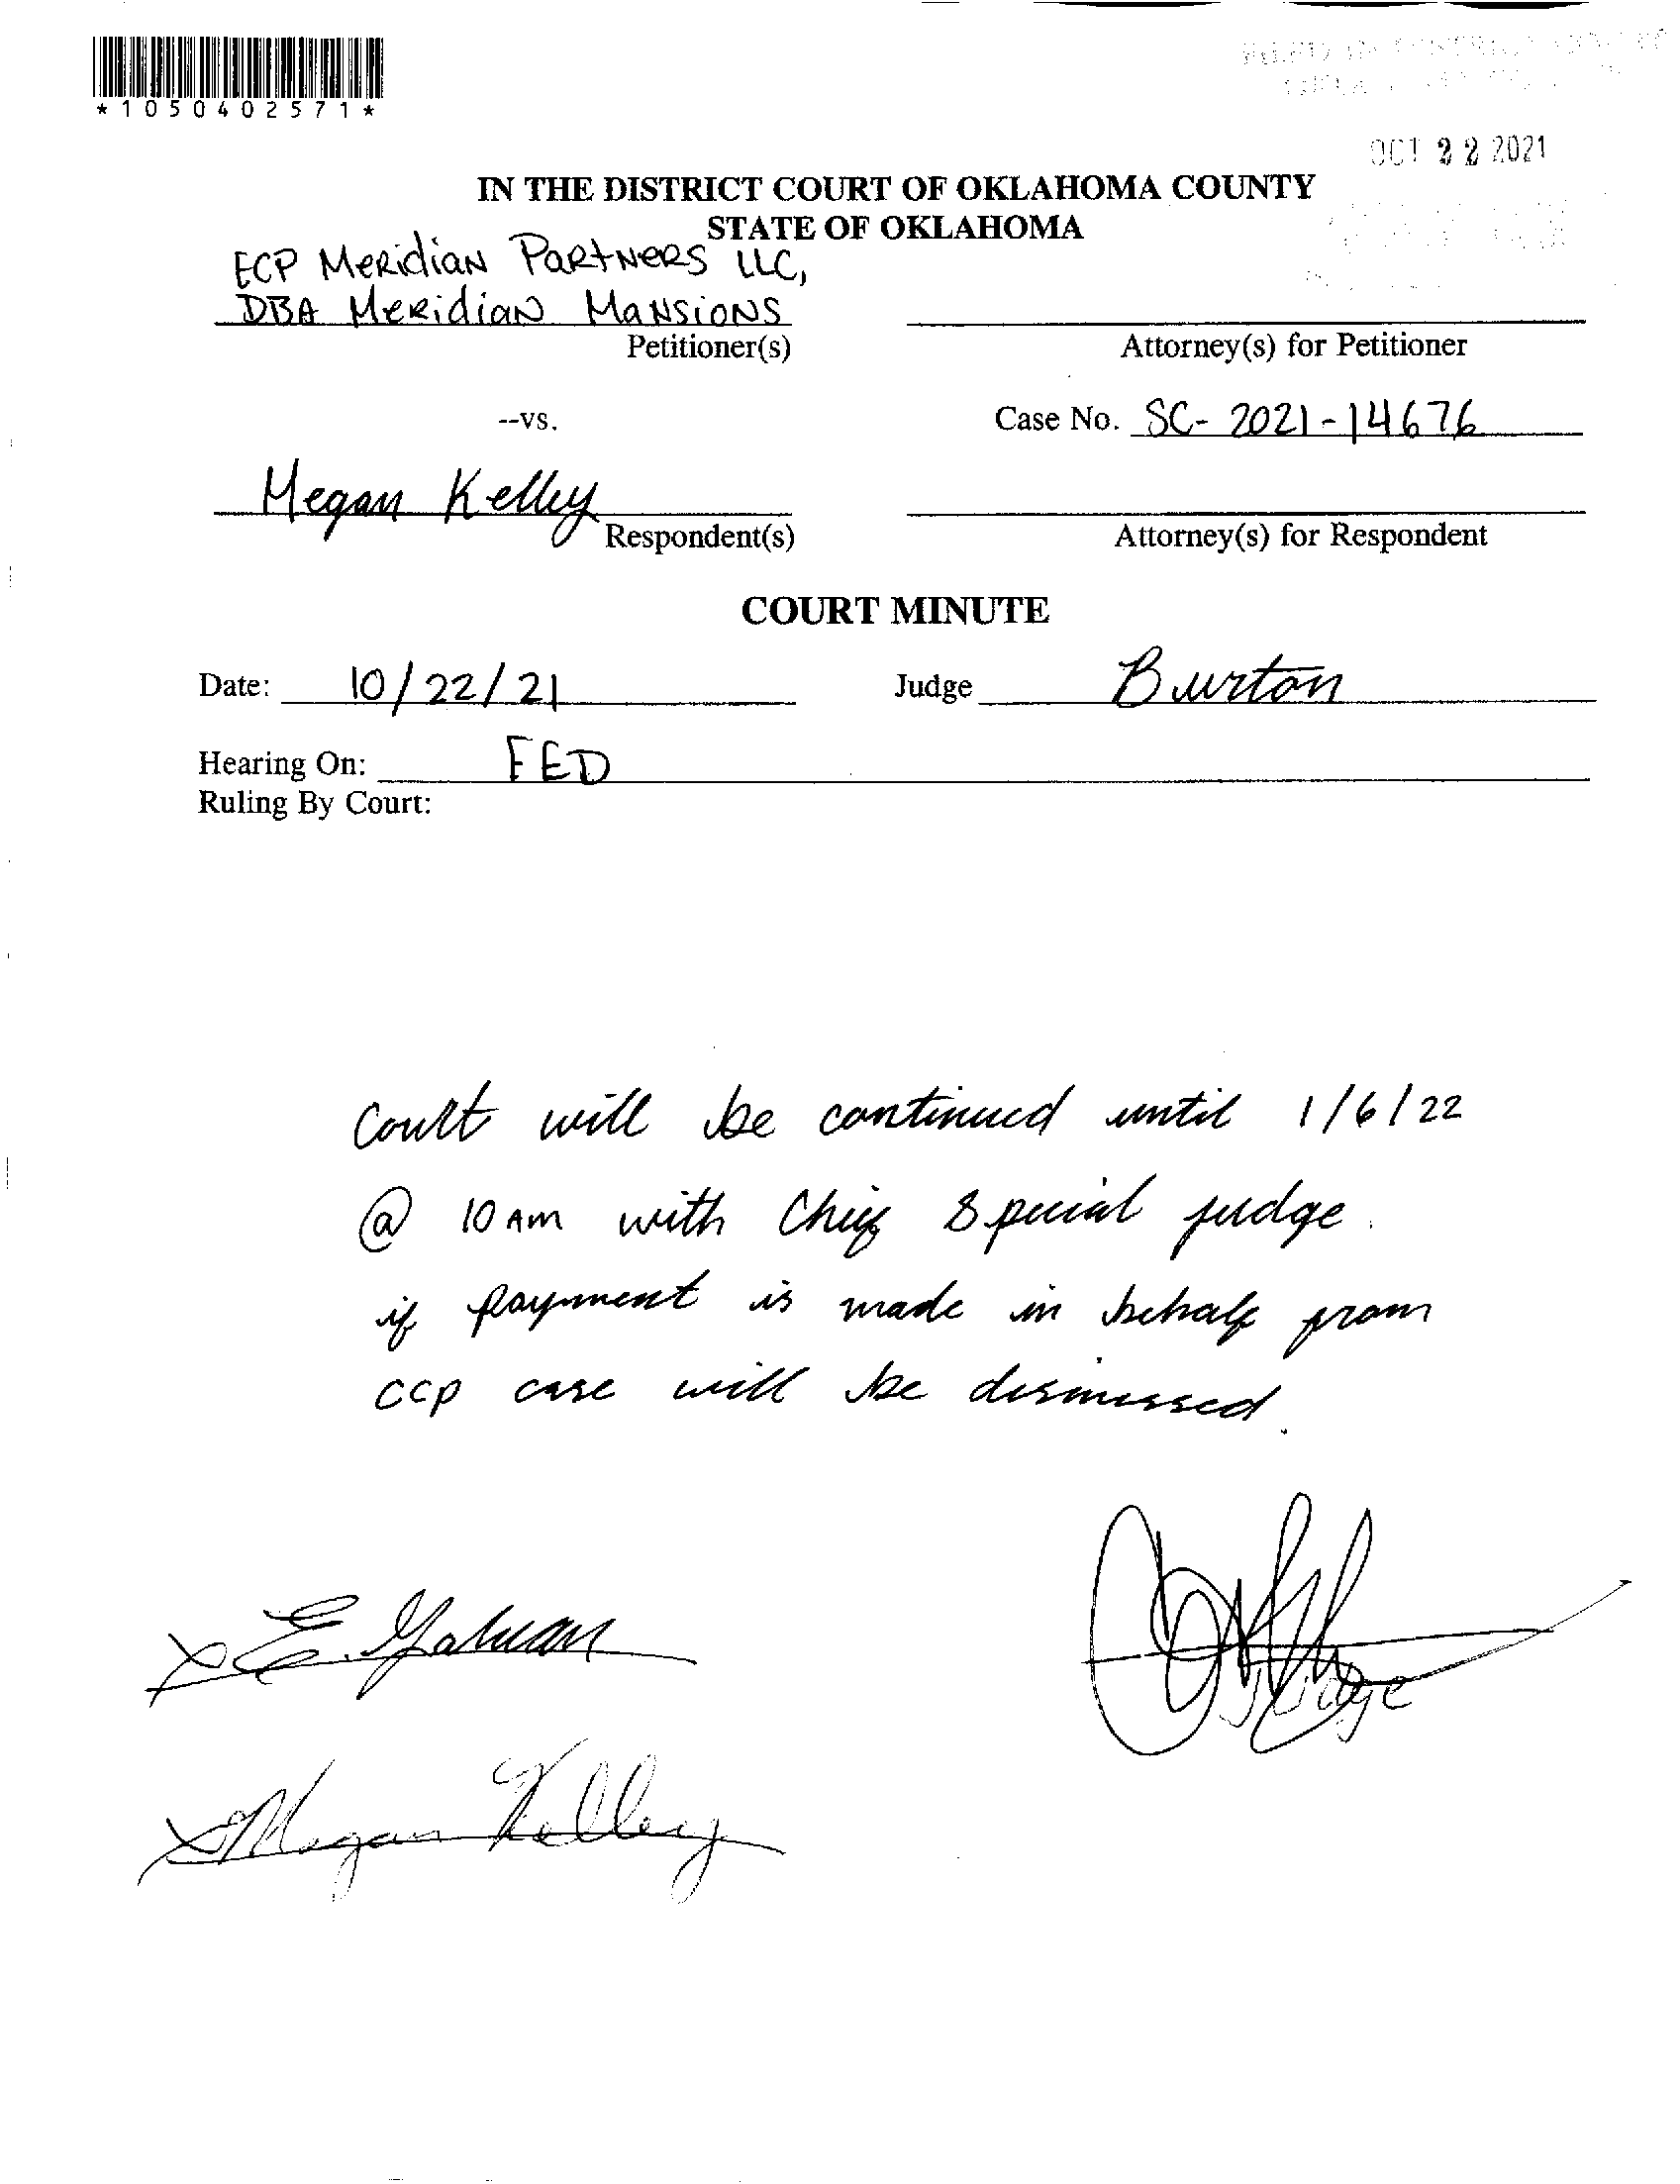 *1050402571*
OCT 22 2021
IN THE DISTRICT COURT OF OKLAHOMA COUNTY
STATE OF OKLAHOMA
ECP Meridian Partners LLC,
DBA Meridian Mansions
Petitioner(s)
Attorney(s) for Petitioner
--vs.
Case No. SC-2021-14676
Megan Kelley
Respondent(s)
Attorney(s) for Respondent
COURT MINUTE
Date: 10/22/21 Judge Burton
Hearing On: FED
Ruling By Court:
Court will be continued until 1/6/22
@ 10 AM with Chief Special judge.
if payment is made in behalf from
CCP case will be dismissed.
x E.
Judge
x Megan Kelley